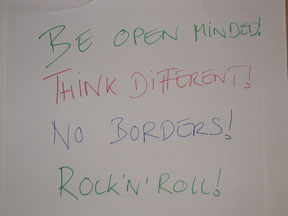 BE OPEN MINDED!
THINK DIFFERENT!
NO BORDERS!
ROCK'N'ROLL!